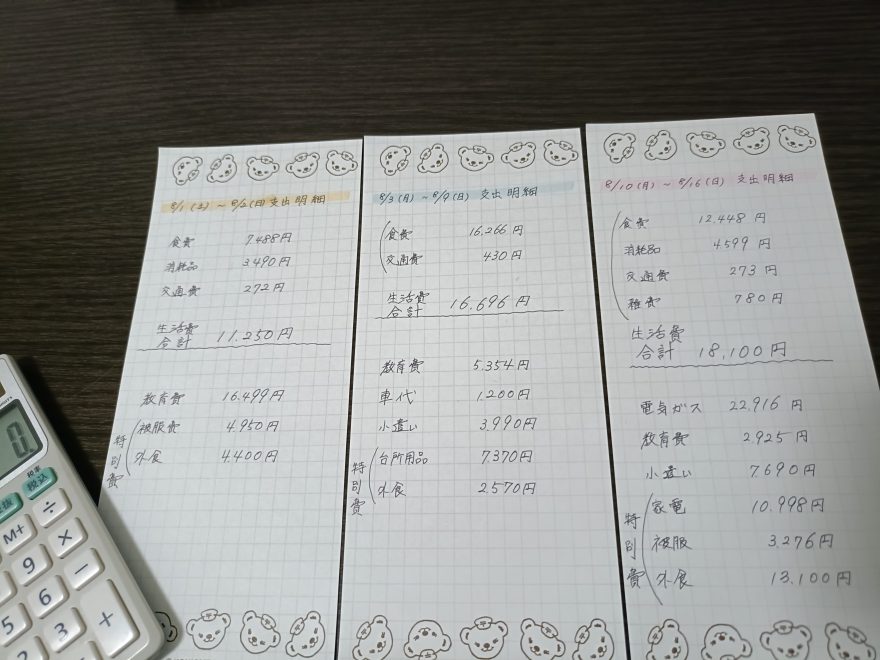 8/1(土)~8/2(日)支出明細
食費 7.488円
消耗品 3.490円
交通費 272円
生活費
合計 11.250円
教育費 16.499円
特別費
被服費 4.950円
外食 4.400円
8/3(月)~8/9(日)支出明細
食費 16.266円
交通費 430円
生活費
合計 16.696円
教育費 5.354円
車代 1.200円
小遣い 3.990円
特別費
台所用品 7.370円
外食 2.570円
8/10(月)~8/16(日)支出明細
食費 12.448円
消耗品 4.599円
交通費 273円
雑費 780円
生活費
合計 18,100円
電気ガス 22,916円
教育費 2,925円
小遣い 7,690円
特別費
家電 10.998円
被服 3,276円
外食 13,100円
0.
税率
税込
税抜
M+
÷
9
×
6
−
5
3
+
2